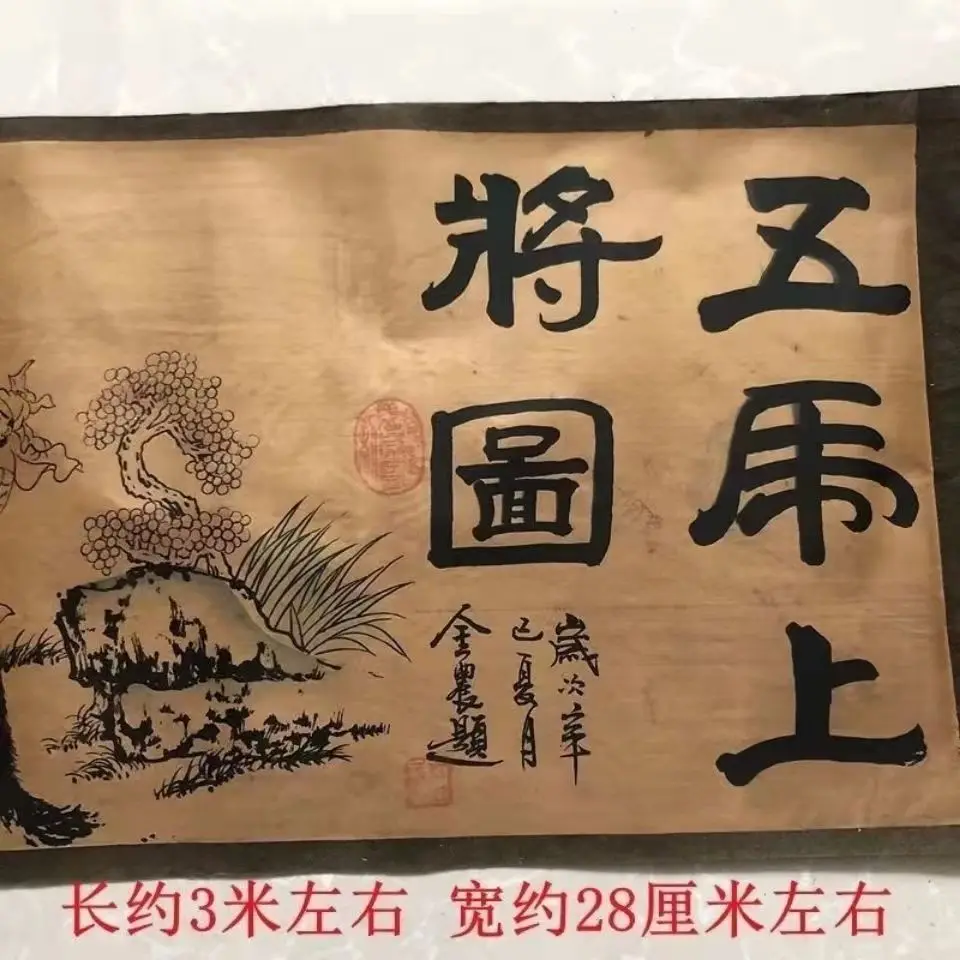 五虎上
將圖
歲次辛
巳夏月
金農題
长约3米左右 宽约28厘米左右